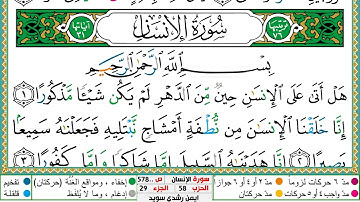 سُورَةُ الإِنسَانِ
بِسْمِ اللَّهِ الرَّحْمَٰنِ الرَّحِيمِ
هَلْ أَتَىٰ عَلَى الْإِنسَانِ حِينٌ مِّنَ الدَّهْرِ لَمْ يَكُن شَيْئًا مَّذْكُورًا ١
إِنَّا خَلَقْنَا الْإِنسَانَ مِن نُّطْفَةٍ أَمْشَاجٍ نَّبْتَلِيهِ فَجَعَلْنَاهُ سَمِيعًا
بَصِيرًا ٢ إِنَّا هَدَيْنَاهُ السَّبِيلَ إِمَّا شَاكِرًا وَإِمَّا كَفُورًا ٣
تفخيم إخفاء، ومواقع الغنّة (حركتان) ص 578 سورة الإنسان مدّ ٢ أو ٤ أو ٦ جوازاً مدّ ٦ حركات لزوماً
قلقلة إدغام، وما لا يُلفَظ الجزء 29 الحزب 58 مدّ حركتان مدّ واجب ٤ أو ٥ حركات
أيمن رشدي سويد